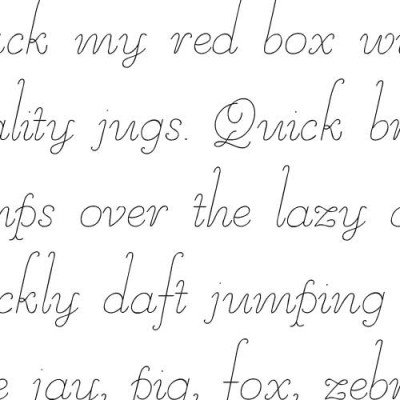 ck my red box w
ality jugs. Quick b
mps over the lazy
ckly daft jumping
jay, pig, fox, zeb